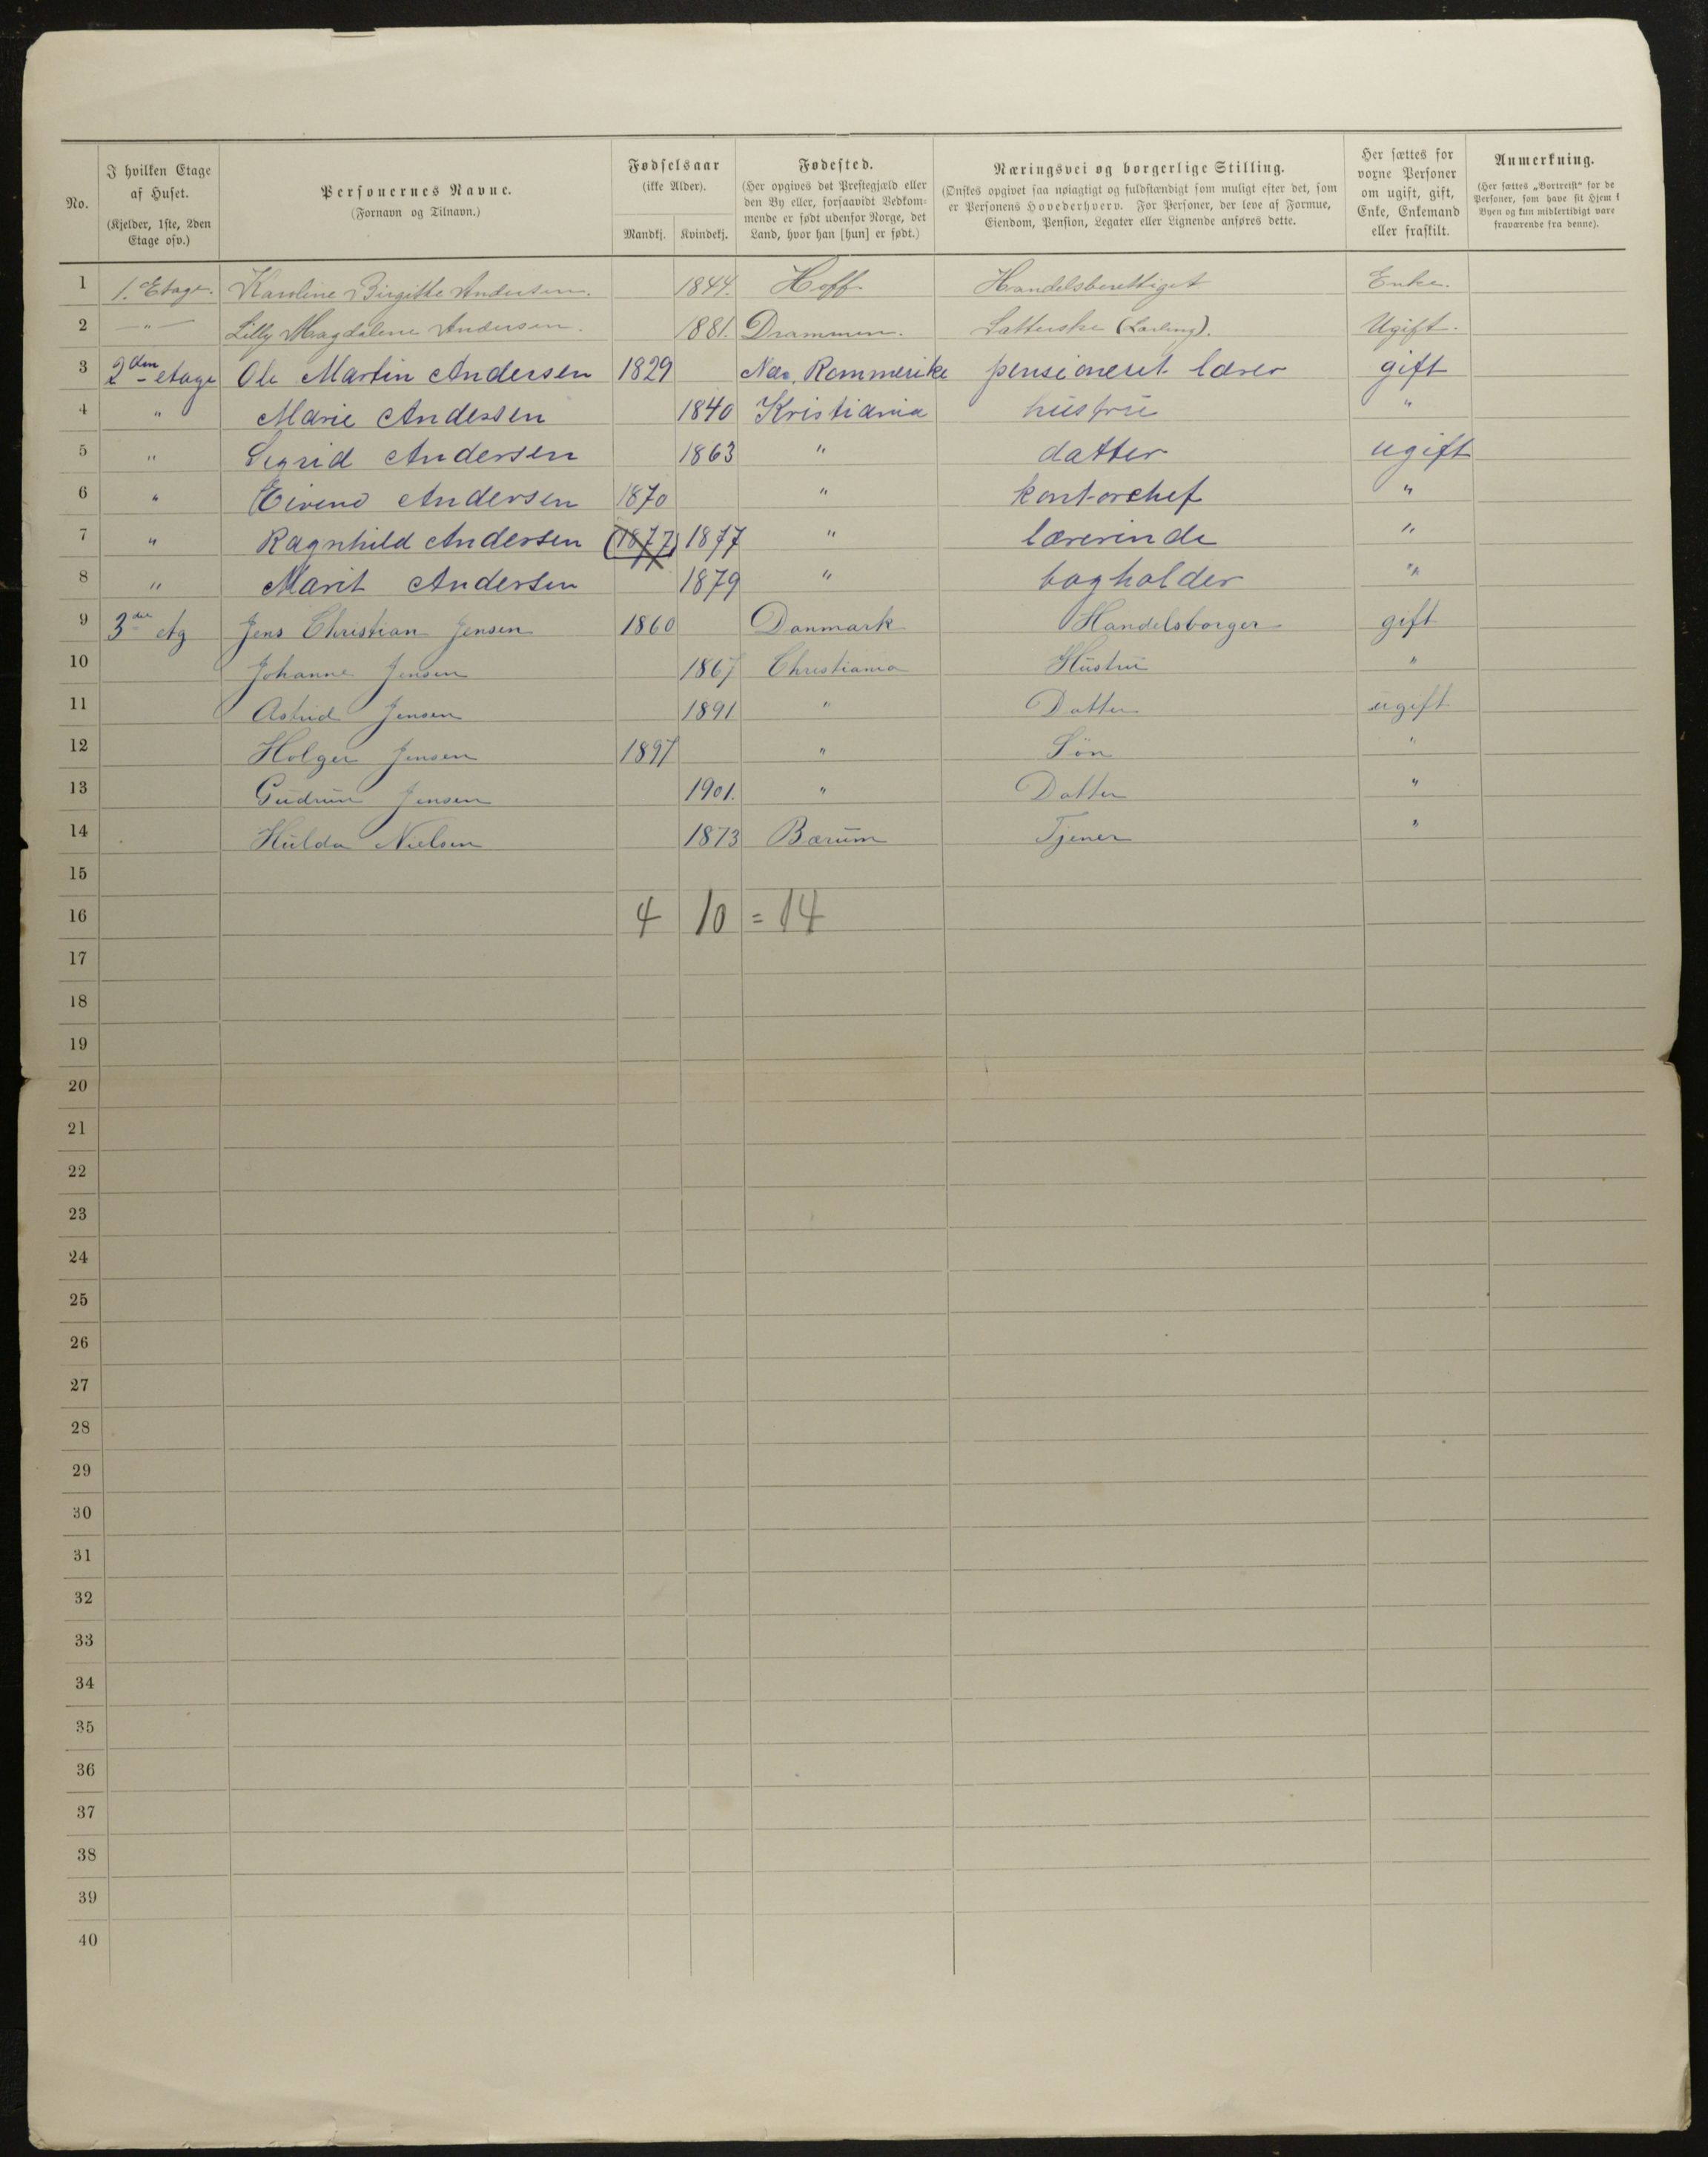 No.
I hvilken Etage af Huset. (Kjelder, 1ste, 2den Etage osv.)
Personernes Navne. (Fornavn og Tilnavn.)
Fødselsaar (ikke Alder). Mandkj. Kvindekj.
Fødested. (Her opgives det Prestegjæld eller den By eller, forsaavidt Vedkommende er født udenfor Norge, det Land, hvor han [hun] er født.)
Næringsvei og borgerlige Stilling. (Ønskes opgivet saa nøiagtigt og fuldstændigt som muligt efter det, som er Personens Hovederhverv. For Personer, der leve af Formue, Eiendom, Pension, Legater eller Lignende anføres dette.
Her sættes for voxne Personer om ugift, gift, Enke, Enkemand eller fraskilt.
Anmerkning. (Her sættes „Bortreist" for de Personer, som have sit Hjem i Byen og kun midlertidigt vare fraværende fra denne).
1 1. Etage. Karoline Birgitte Andersen. 1844. Hoff. Handelsberettiget Enke.
2 —"— Lilly Magdalene Andersen. 1881. Drammen. Ugift.
3 2den etage Ole Martin Andersen 1829 Nes, Rommerike pensioneret lærer gift
4 " Marie Andersen 1840 Kristiania hustru "
5 " Sigrid Andersen 1863 " datter ugift
6 " Eivind Andersen 1870 " kontorchef "
7 " Ragnhild Andersen (1877) 1877 " lærerinde "
8 " Marit Andersen 1879 " bogholder "
9 3die Etg Jens Christian Jensen 1860 Danmark Handelsborger gift
10 Johanne Jensen 1867 Christiania Hustru "
11 Astrid Jensen 1891 " Datter ugift
12 Holger Jensen 1897 " Søn "
13 Gudrun Jensen 1901. " Datter "
14 Hulda Nielsen 1873 Bærum Tjener "
15
16 4 10 = 14
17
18
19
20
21
22
23
24
25
26
27
28
29
30
31
32
33
34
35
36
37
38
39
40